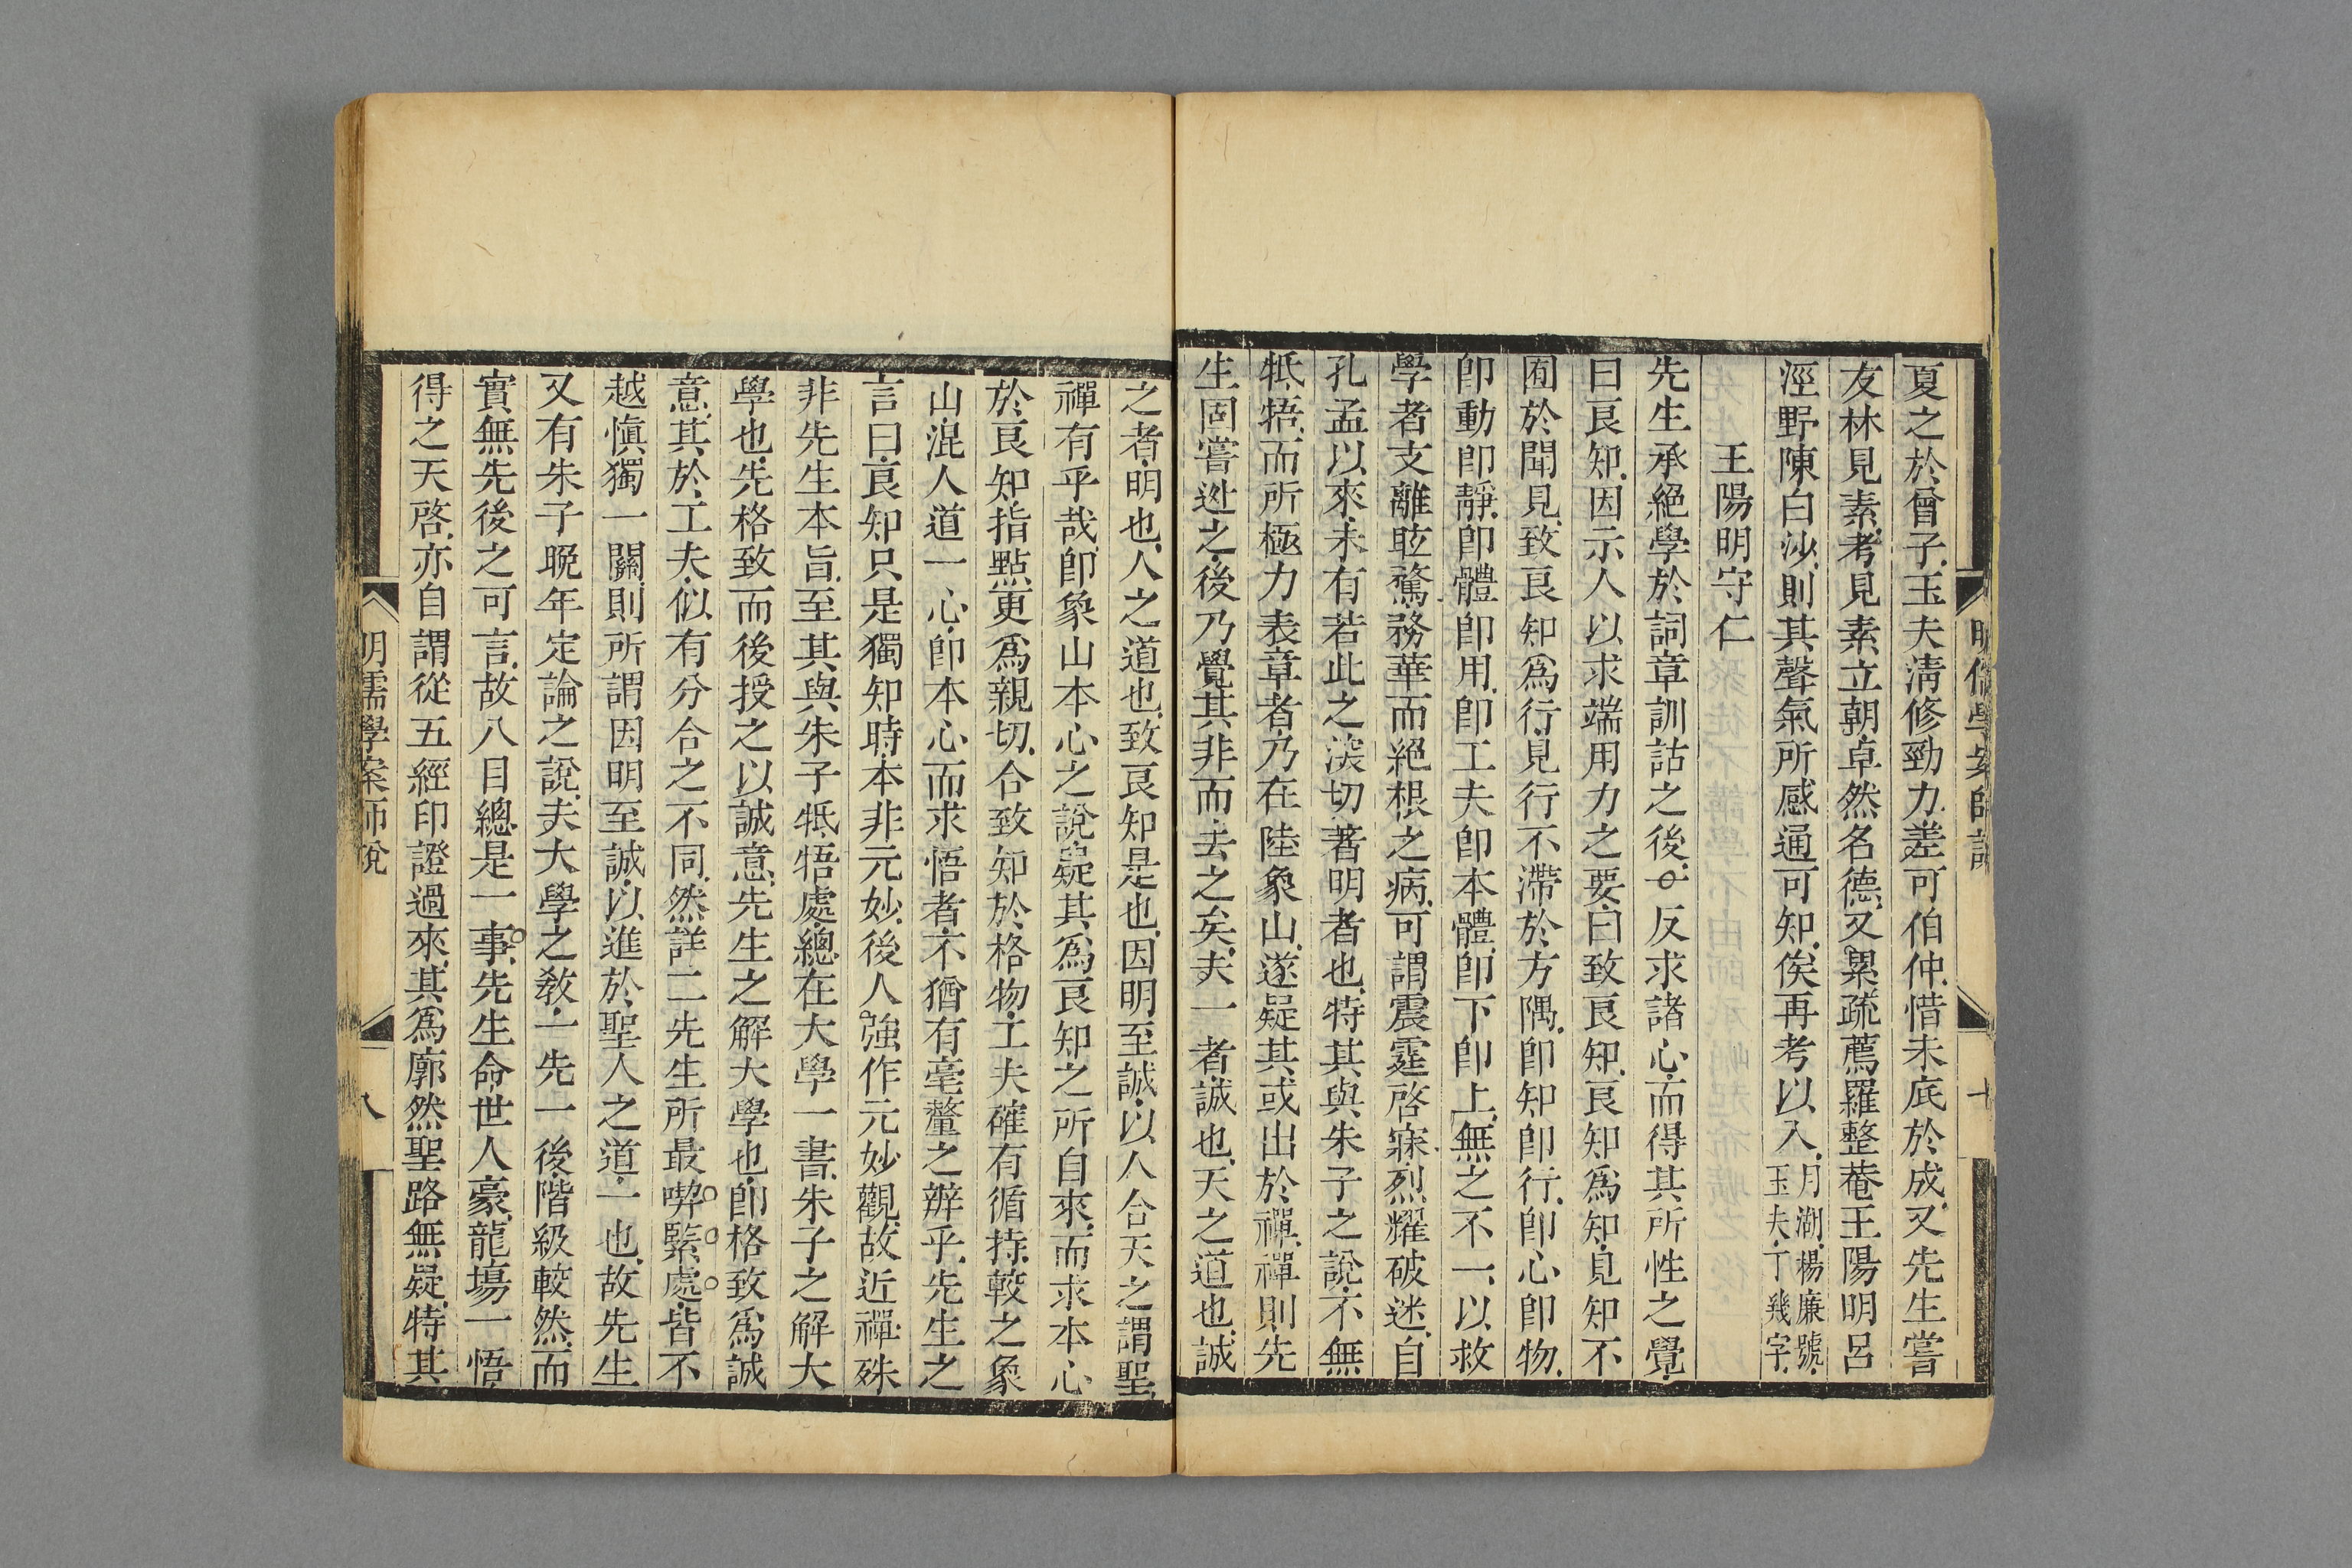 夏之於曾子、玉夫清修勁力、差可伯仲、惜未底於成、又先生嘗
友林見素、考見素立朝、卓然名德、又累疏薦羅整菴王陽明呂
涇野陳白沙、則其聲氣所感通可知、俟再考以入、月湖、楊廉號、玉夫、丁璣字、
王陽明守仁
先生承絕學於詞章訓詁之後、一反求諸心、而得其所性之覺、
曰良知、因示人以求端用力之要、曰致良知、良知爲知、見知不
囿於聞見、致良知爲行、見行不滯於方隅、卽知卽行、卽心卽物、
卽動卽靜、卽體卽用、卽工夫卽本體、卽下卽上、無之不一、以救
學者支離眩騖、務華而絕根之病、可謂震霆啓寐、烈耀破迷、自
孔孟以來、未有若此之深切著明者也、特其與朱子之說、不無
牴牾、而所極力表章者、乃在陸象山、遂疑其或出於禪、禪則先
生固嘗逃之、後乃覺其非而去之矣、夫一者誠也、天之道也、誠
之者明也、人之道也、致良知是也、因明至誠、以人合天之謂聖、
禪有乎哉、卽象山本心之說、疑其爲良知之所自來、而求本心
於良知、指點更爲親切、合致知於格物、工夫確有循持、較之象
山混人道一心、卽本心而求悟者、不猶有毫釐之辨乎、先生之
言曰、良知只是獨知時、本非元妙、後人強作元妙觀、故近禪、殊
非先生本旨、至其與朱子牴牾處、總在大學一書、朱子之解大
學也、先格致而後授之以誠意、先生之解大學也、卽格致爲誠
意、其於工夫、似有分合之不同、然詳二先生所最喫緊處、皆不
越愼獨一關、則所謂因明至誠、以進於聖人之道、一也、故先生
又有朱子晚年定論之說、夫大學之敎、一先一後、階級較然、而
實無先後之可言、故八目總是一事、先生命世人豪、龍場一悟、
得之天啓、亦自謂從五經印證過來、其爲廓然聖路無疑、特其
明儒學案師說
八